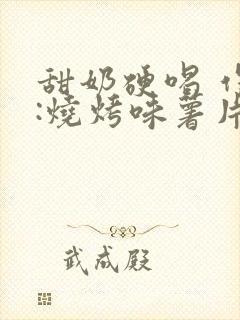 甜奶硬唱
:燒烤味薯片
武成殿